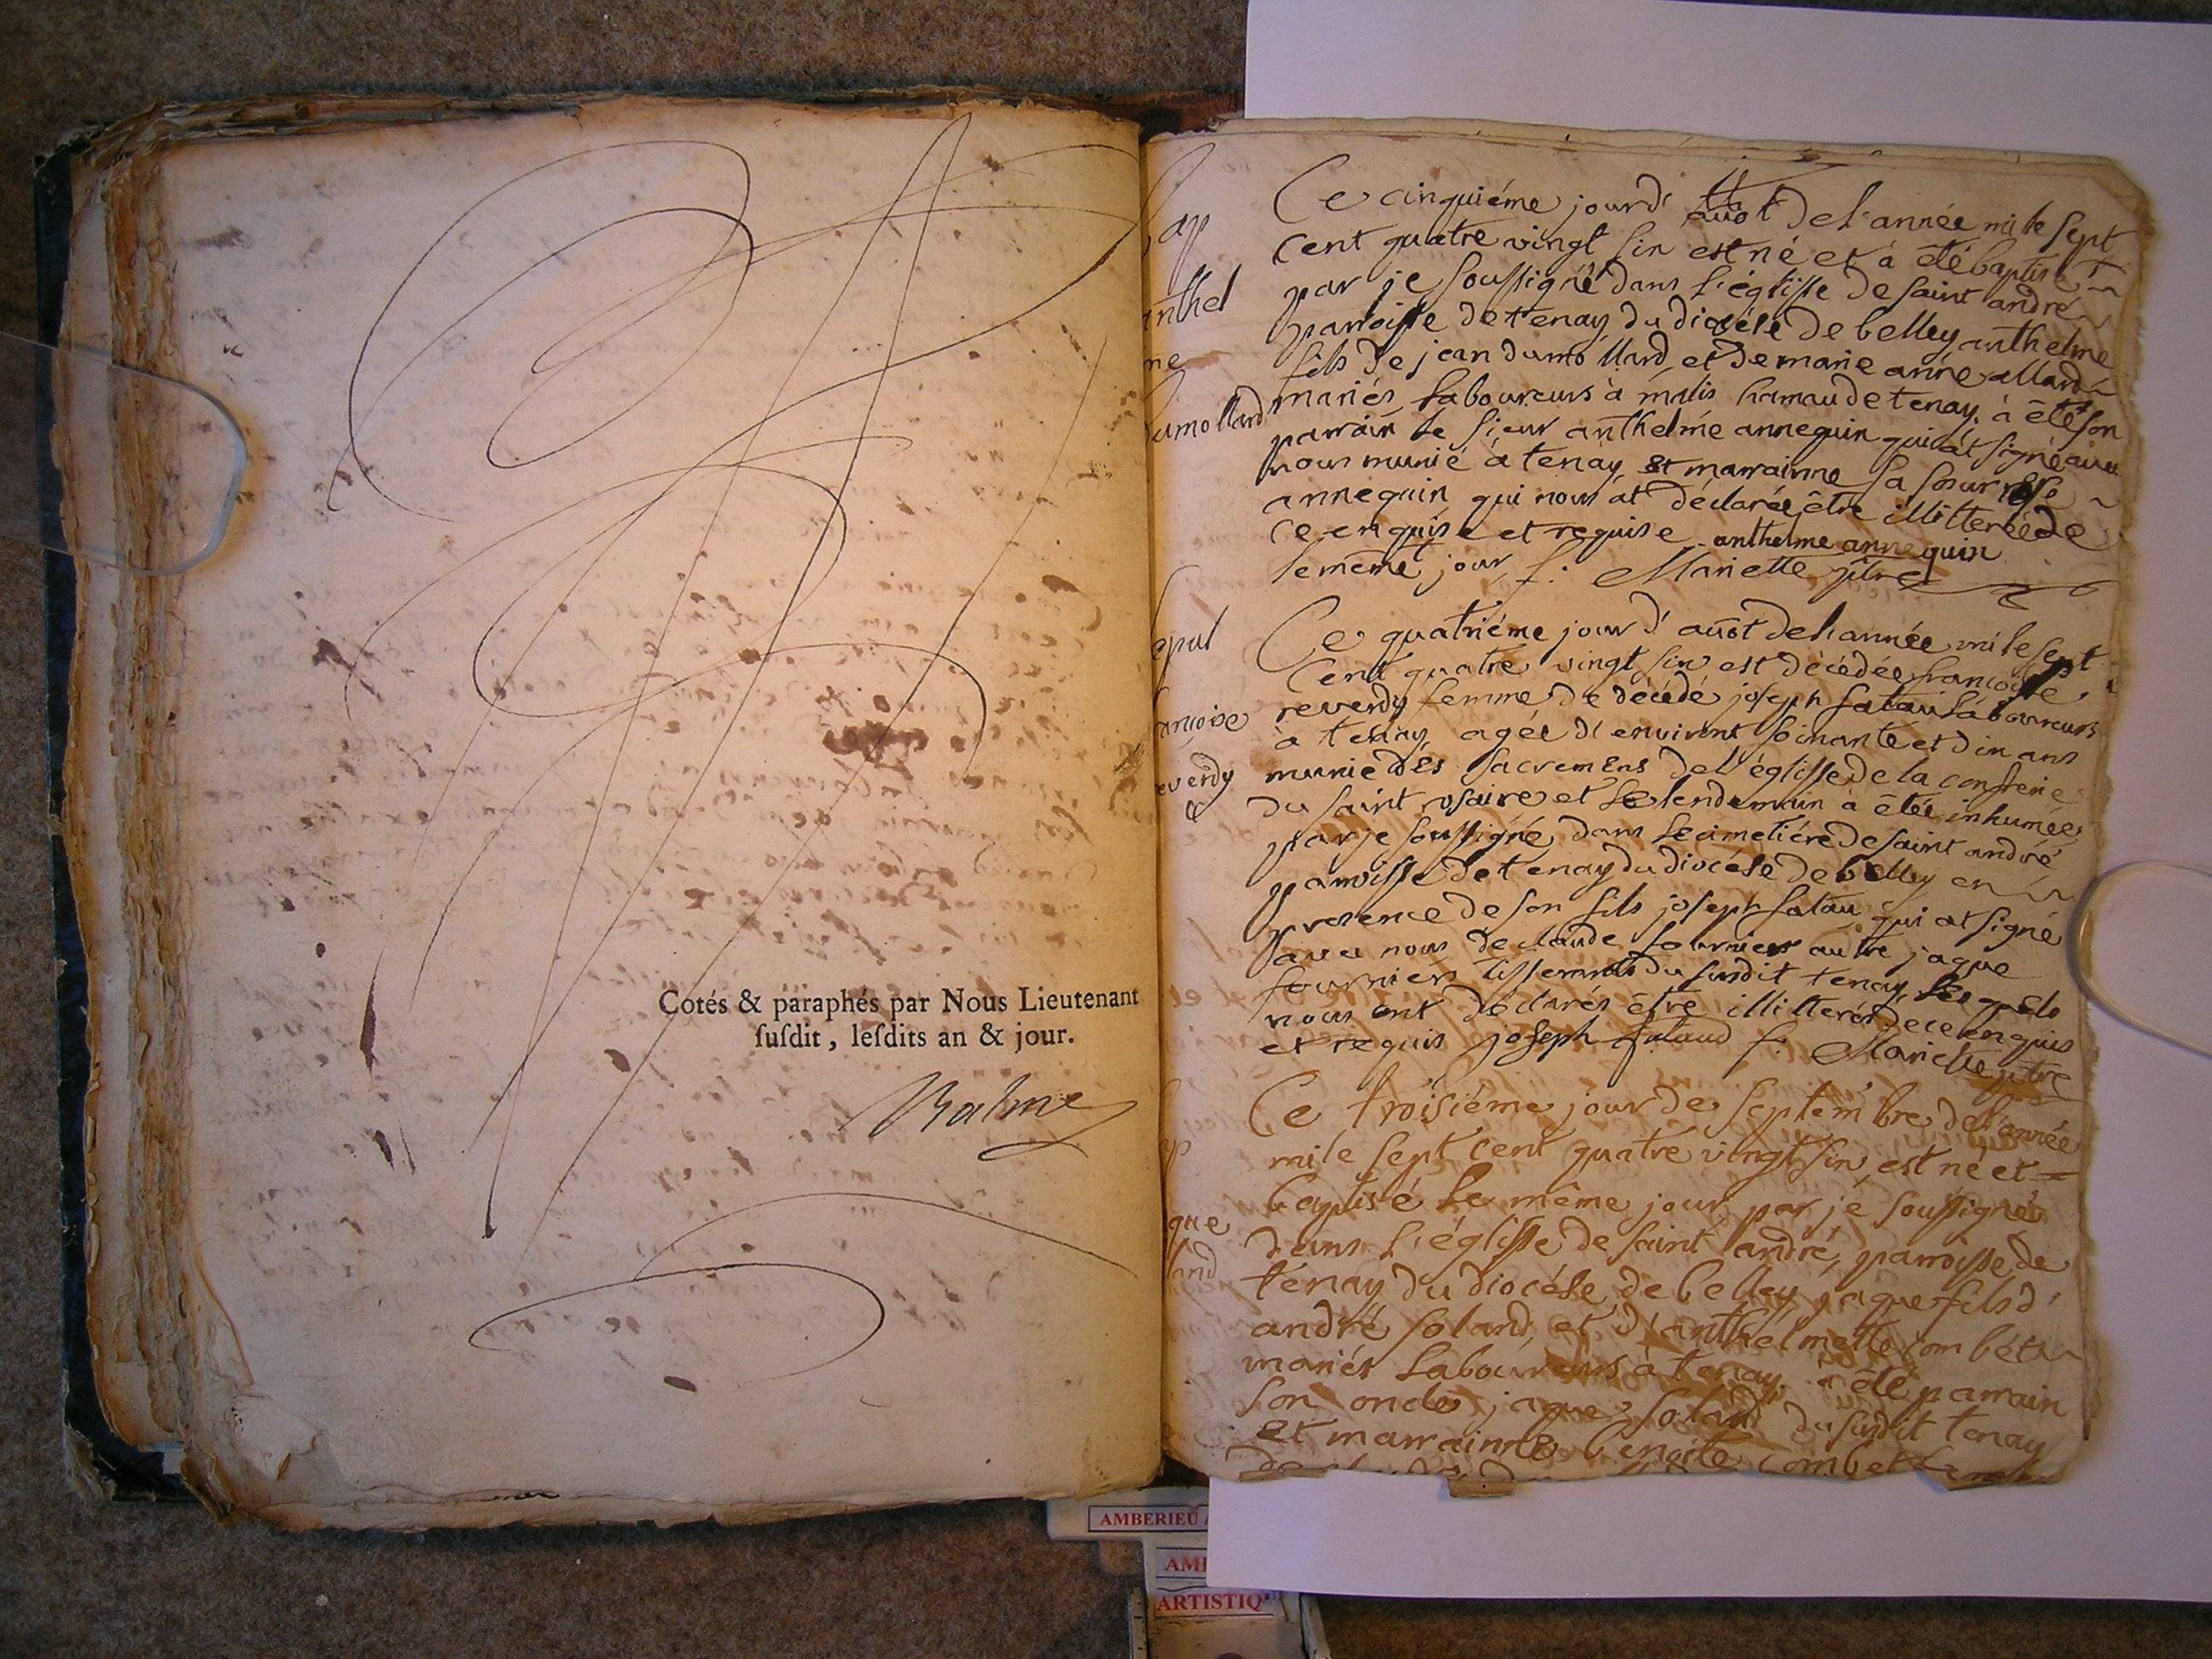 Cotés & paraphés par Nous Lieutenant
ſuſdit, leſdits an & jour.
Balme
bap
anthel
me
dumollard
Ce cinquiéme jour d' auôt de l'année mile sept
cent quatre vingt six est né et à été baptisé
par je soussigné dans l'églisse de saint andré
parroisse de tenay du diocése de belley anthelme
fils de jean dumollard et de marie anne allard
mariés laboureurs à malis hamau de tenay. à été son
parrain le sieur anthelme annequin qui at signé avec
nous munié à tenay et marrainne sa sœur
annequin qui nous at déclarée être illiterée de
ce enquise et requise anthelme annequin
le même jour f: Mariette ptre
sepul
francoise
reverdy
Ce quatriéme jour d' auôt de l'année mile sept
cent quatre vingt six est décédée francoise
reverdy femme de décédé joseph falau laboureurs
à tenay agée d' environt soixante et dix ans
munie des sacremens de l'églisse de la confrerie
du saint rosaire et le lendemain à étée inhumée
par je soussigné dans le cimetiére de saint andré
parroisse de tenay du diocése de belley en
presence de son fils joseph falau qui at signé
avec nous de claude fournier autre jaque
fournier tisserants du susdit tenay, lesquels
nous ont déclarés être illiterés de ce enquis
et requis joseph falaud f: Mariette ptre
bap
jaque
soland
Ce troisiéme jour de septembre de l'année
mile sept cent quatre vingt six est né et
baptisé le même jour par jé soussigné
dans l'églisse de saint andré, parroisse de
tenay du diocése de belley jaque fils d'
andré soland, et d'anthelmette combét
mariés laboureurs à tenay, à été parrain
son oncle jaque soland du susdit tenay
et marrainne benoite combet
AMBERIEU
AMB
ARTISTIQ